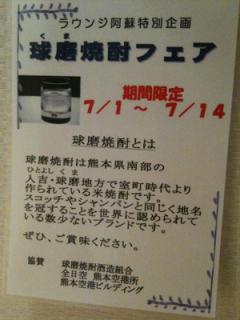 ラウンジ阿蘇特別企画
くま
球磨焼酎フェア
期間限定
7/1 ～ 7/14
球磨焼酎とは
球磨焼酎は熊本県南部の
ひとよし くま
人吉・球磨地方で室町時代より
作られている米焼酎です。
スコッチやシャンパンと同じく地名
を冠することを世界に認められて
いる数少ないブランドです。
ぜひ、ご賞味ください。
協賛 球磨焼酎酒造組合
全日空 熊本空港所
熊本空港ビルディング